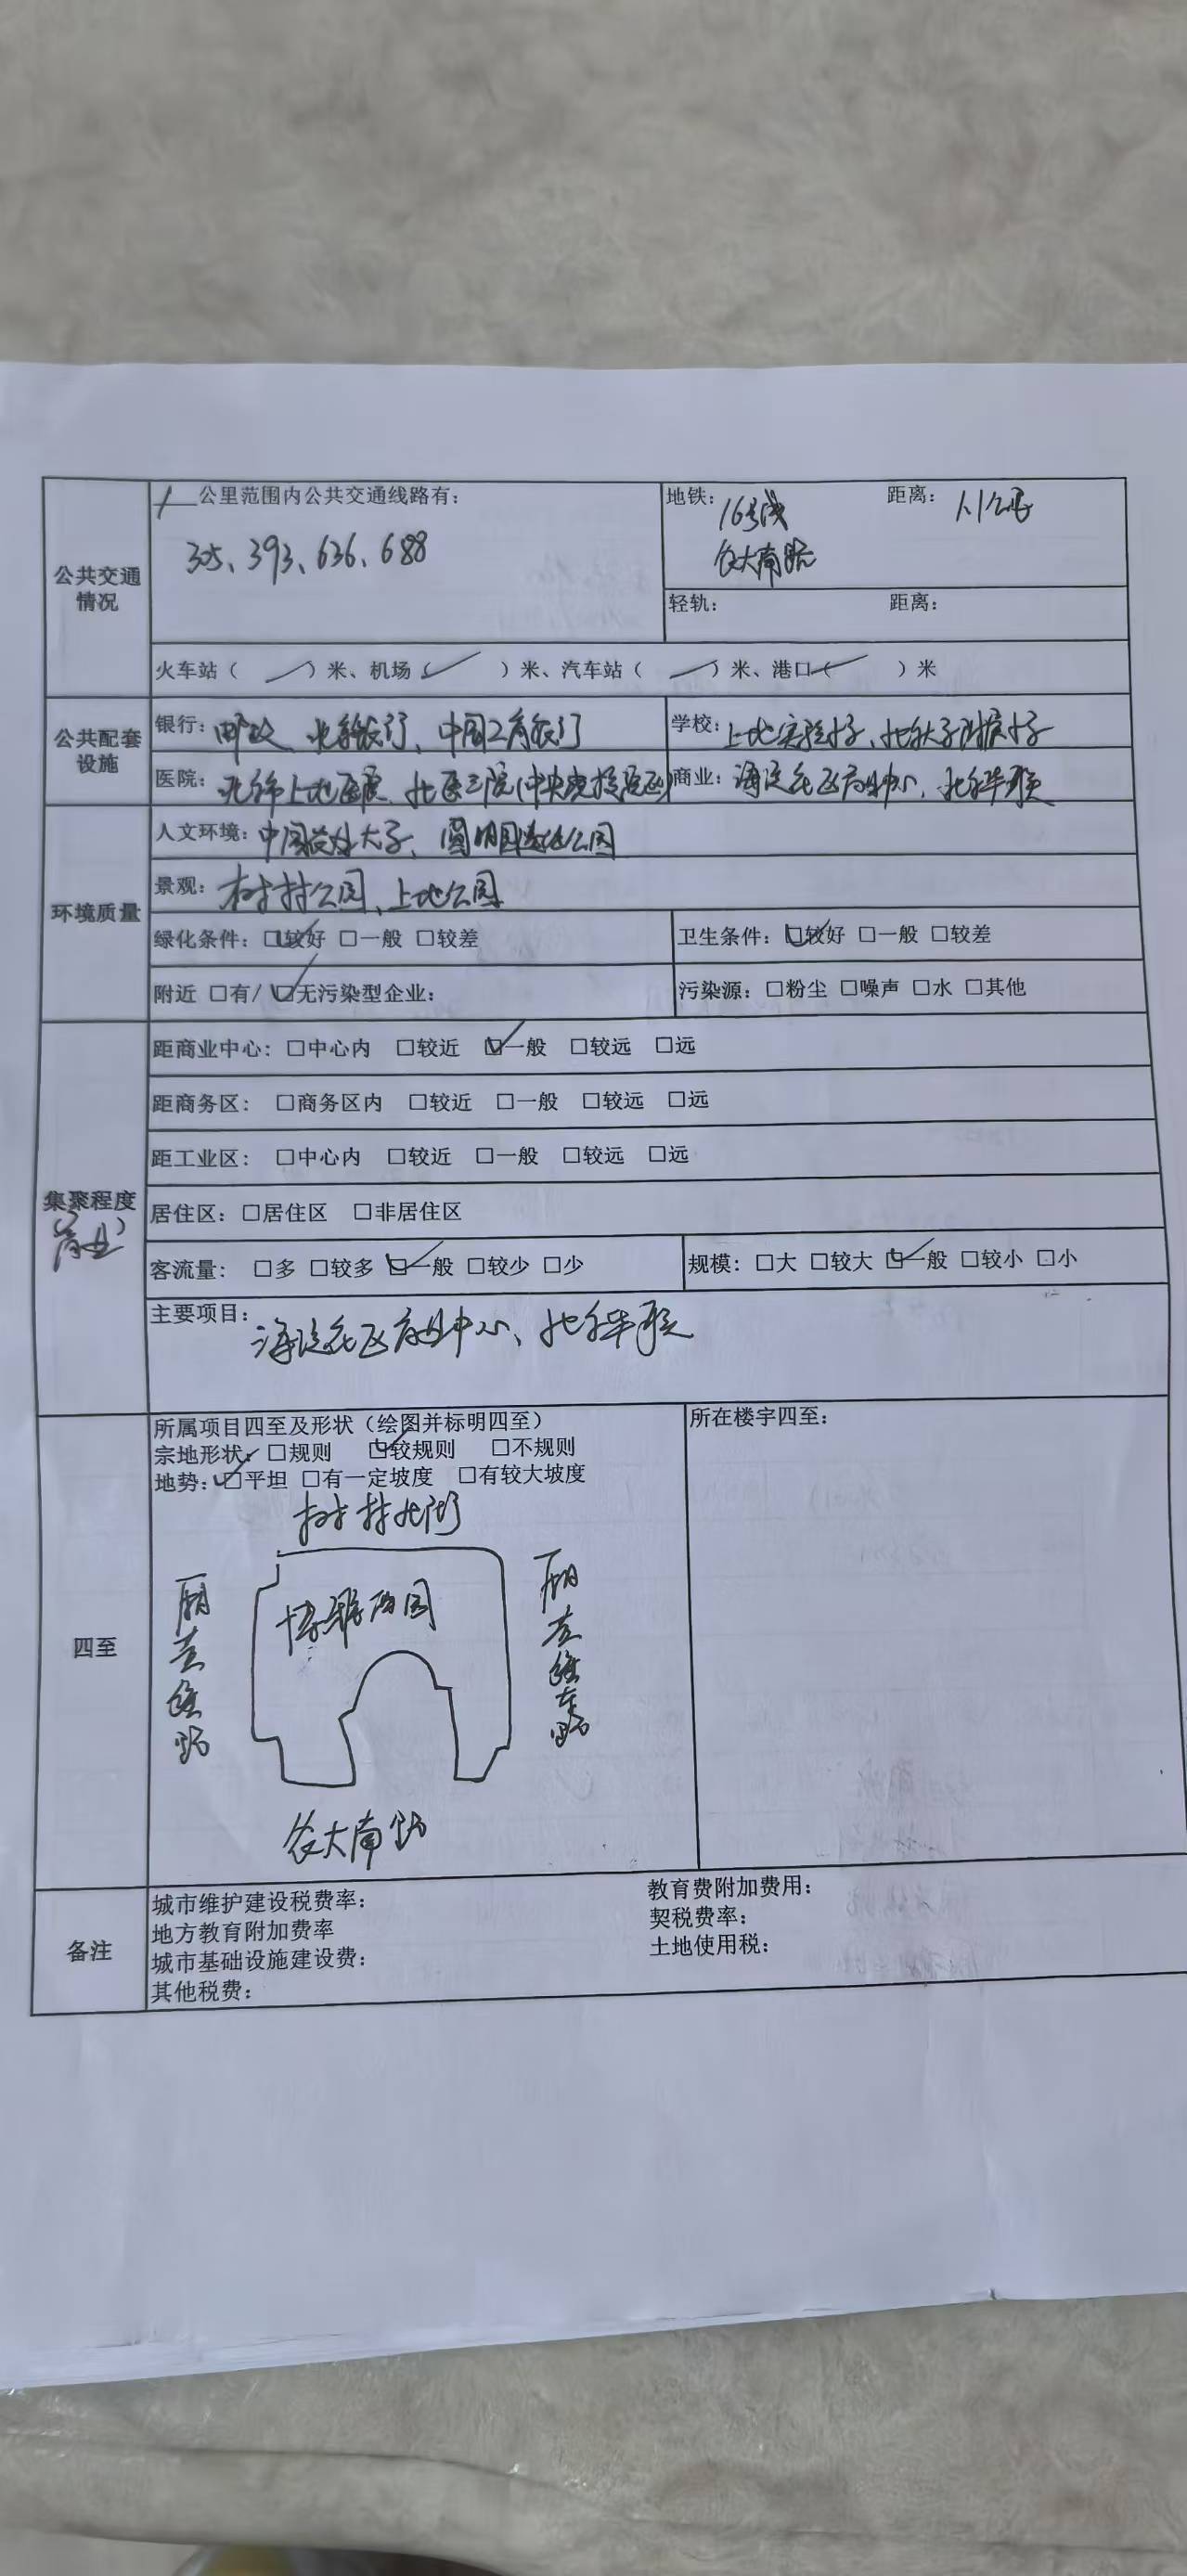 公共交通情况
一 公里范围内公共交通线路有：
305、393、636、688
地铁： 16号线 距离： 1.1公里
农大南路
轻轨： 距离：
火车站（ ）米、机场（ ）米、汽车站（ ）米、港口（ ）米
公共配套设施
银行：邮政、北京银行、中国工商银行
学校：上地实验小学、北京大学附属小学
医院：北京上地医院、北医三院(中央党校院区)
商业：海淀花区商业中心、北京华联
环境质量
人文环境：中国农业大学、圆明园遗址公园
景观：树村公园、上地公园
绿化条件：☑较好 □一般 □较差
卫生条件：☑较好 □一般 □较差
附近 □有/ ☑无污染型企业：
污染源：□粉尘 □噪声 □水 □其他
集聚程度
(商业)
距商业中心：□中心内 □较近 ☑一般 □较远 □远
距商务区： □商务区内 □较近 □一般 □较远 □远
距工业区： □中心内 □较近 □一般 □较远 □远
居住区：□居住区 □非居住区
客流量： □多 □较多 ☑一般 □较少 □少
规模：□大 □较大 ☑一般 □较小 □小
主要项目：
海淀花区商业中心、北京华联
四至
所属项目四至及形状（绘图并标明四至）
宗地形状：□规则 ☑较规则 □不规则
地势：☑平坦 □有一定坡度 □有较大坡度
树村北街
博雅西园
农大南路
所在楼宇四至：
备注
城市维护建设税费率：
地方教育附加费率
城市基础设施建设费：
其他税费：
教育费附加费用：
契税费率：
土地使用税：